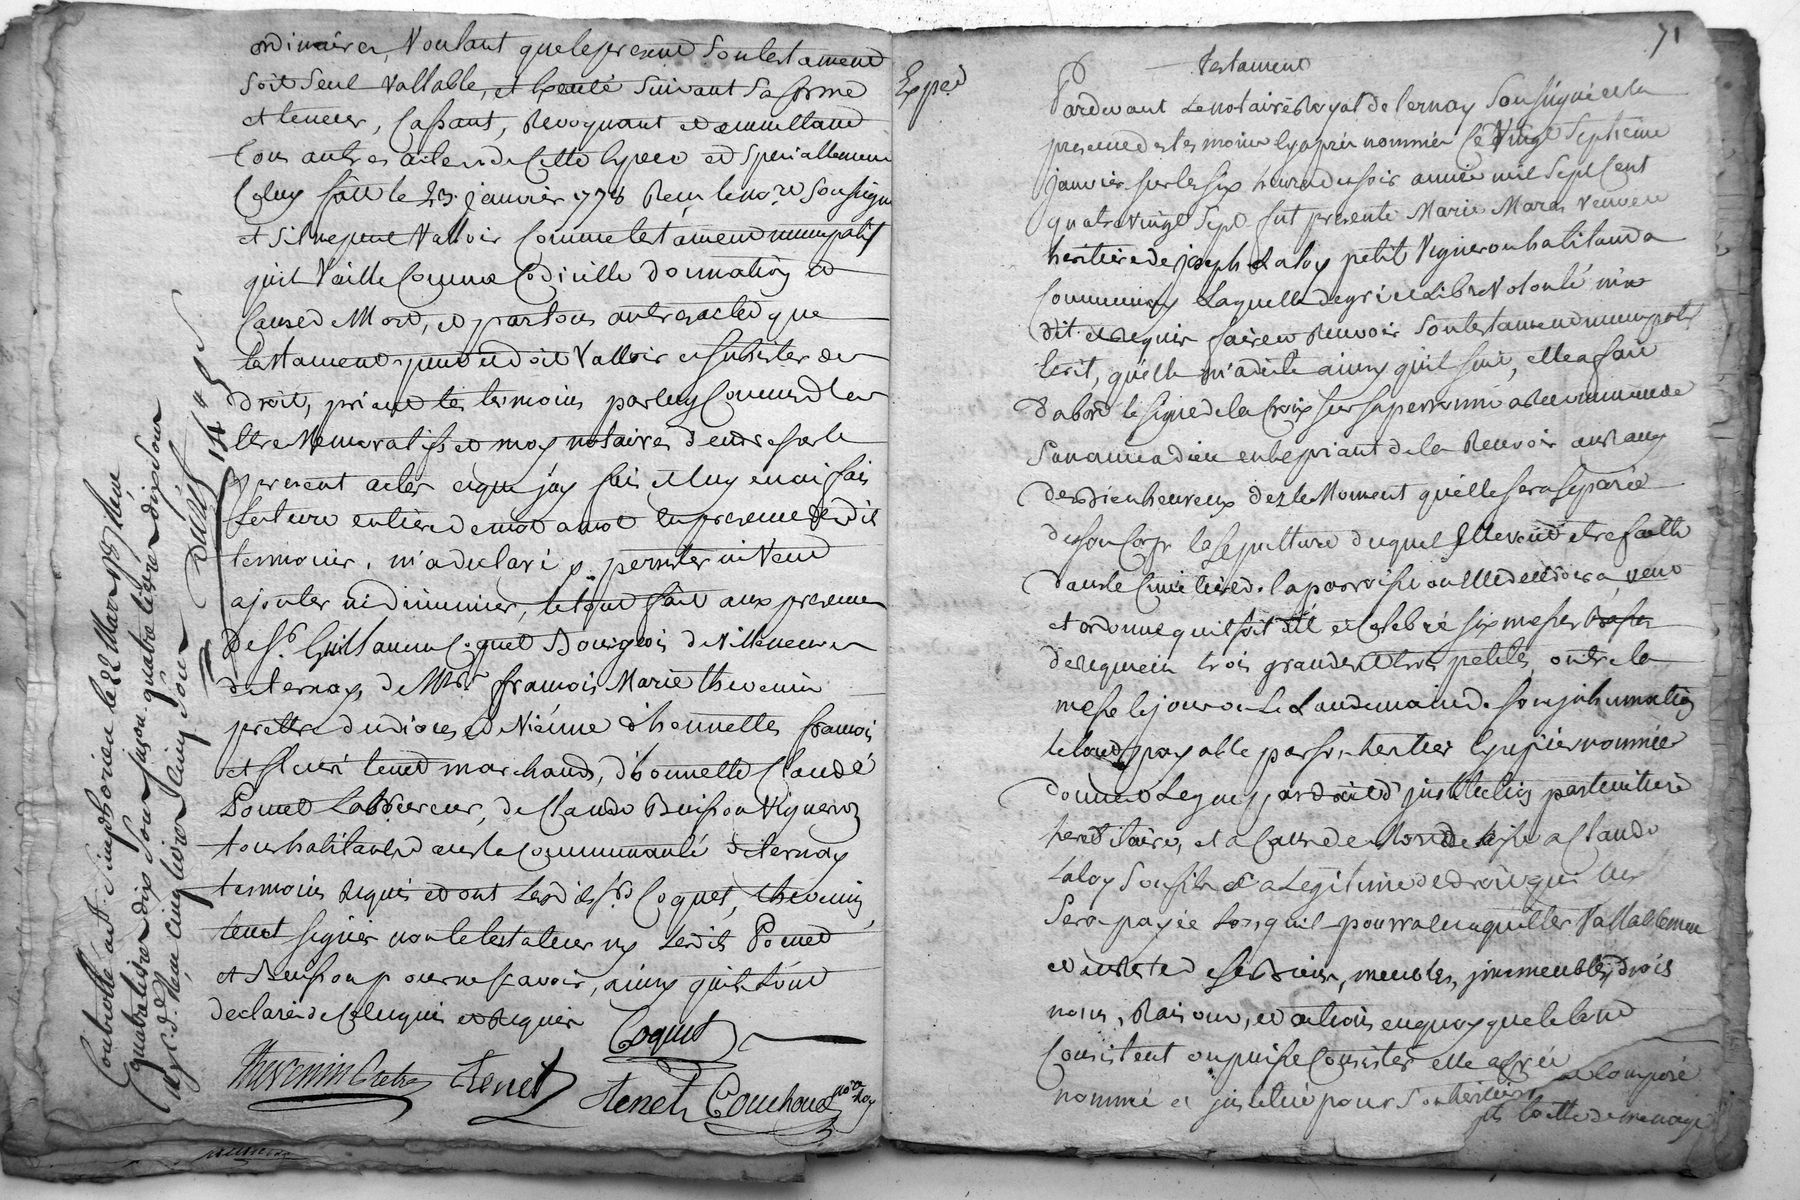 ordinaires, Voulant que le present son testament
soit seul vallable, et executé suivant sa forme
et teneur, Cassant, Revoquant et annullant
tous autres actes de cette espece et speciallement
Celuy fait le 23 janvier 1778 Reçu le no.re soussigné
et s'il ne peut valloir comme testament nuncupatif
qu'il vaille comme Codicille donnation a
Cause de Mort, et par tous autres actes que
testament peut et doit valloir et subsister de
droit, priant les temoins par luy connus d'en
etre memoratifs et moy notaire d'en dresser le
present acte que j'ay fait et luy en ai fait
lecture entiere de mot a mot en presence desdits
temoins, m'a declaré y persister ni veut
ajouter ni diminuer, le tout fait aux presences
de Sr. Guillaume Coquet Bourgeois de Villeneuve
de ternay, de Mre. françois Marie thevenin
prettre du diocese de Vienne d'honnettes françois
et fleuri tenet marchands, d'honnette Claude
Pomet Laboureur, de Claude Buisson Vigneron
tous habitants dans la communauté de ternay
temoins requis et ont lesdits srs Coquet, thevenin,
tenet signés non le testateur ny lesdits Pomet
et Buisson pour ne scavoir, ainsy qu'ils l'ont
declaré de ce enquis et requis
Coquet
Thevenin Pretre tenet
tenet Couchoud no.re Roy
Controllé a St. Simphorien le 22 Mars 1787 Reçu
quatre livres dix sous
Reçu cinq livres cinq sous
71
Exped
Testament
Pardevant le notaire Royal de ternay soussigné et en
presence des temoins cy apres nommés Ce vingt septieme
janvier sur les six heures du soir année mil sept Cent
quatre vingt sept fut presente Marie Maras veuve et
heritiere de joseph Laloy petit Vigneron habitant a
Communay Laquelle de gré et libre volonté m'a
dit et requis faire et Recevoir son testament nuncupatif
écrit, quelle m'a dicté ainsy qu'il suit, elle a fait
d'abord le signe de la Croix sur sa personne a recommandé
son ame a dieu en le priant de la Recevoir au rang
des Bienheureux dez le Moment quelle sera separée
de son Corps la sepulture duquel Elle veut etre faitte
dans le Cimetiere de la parroisse ou Elle decedera veut
et ordonne qu'il soit dit et Celebré six messes
de requiem trois grandes et trois petites outre la
messe le jour ou le Landemain de son inhumation
le tout payable par son heritier cy apres nommé
donne et Legue par droit d'institution particuliere
hereditaire, et a Cause de Mort a Claude
Laloy son fils sa Légitime de droit qui luy
sera payée Lorsqu'il pourra en quitter vallablement
et au reste de ses Biens, meubles, jmmeubles, droits
noms, Raisons, et actions en quoy que le tout
Consistent ou puisse Consister elle a Créé
nommé et jnstitué pour son heritier